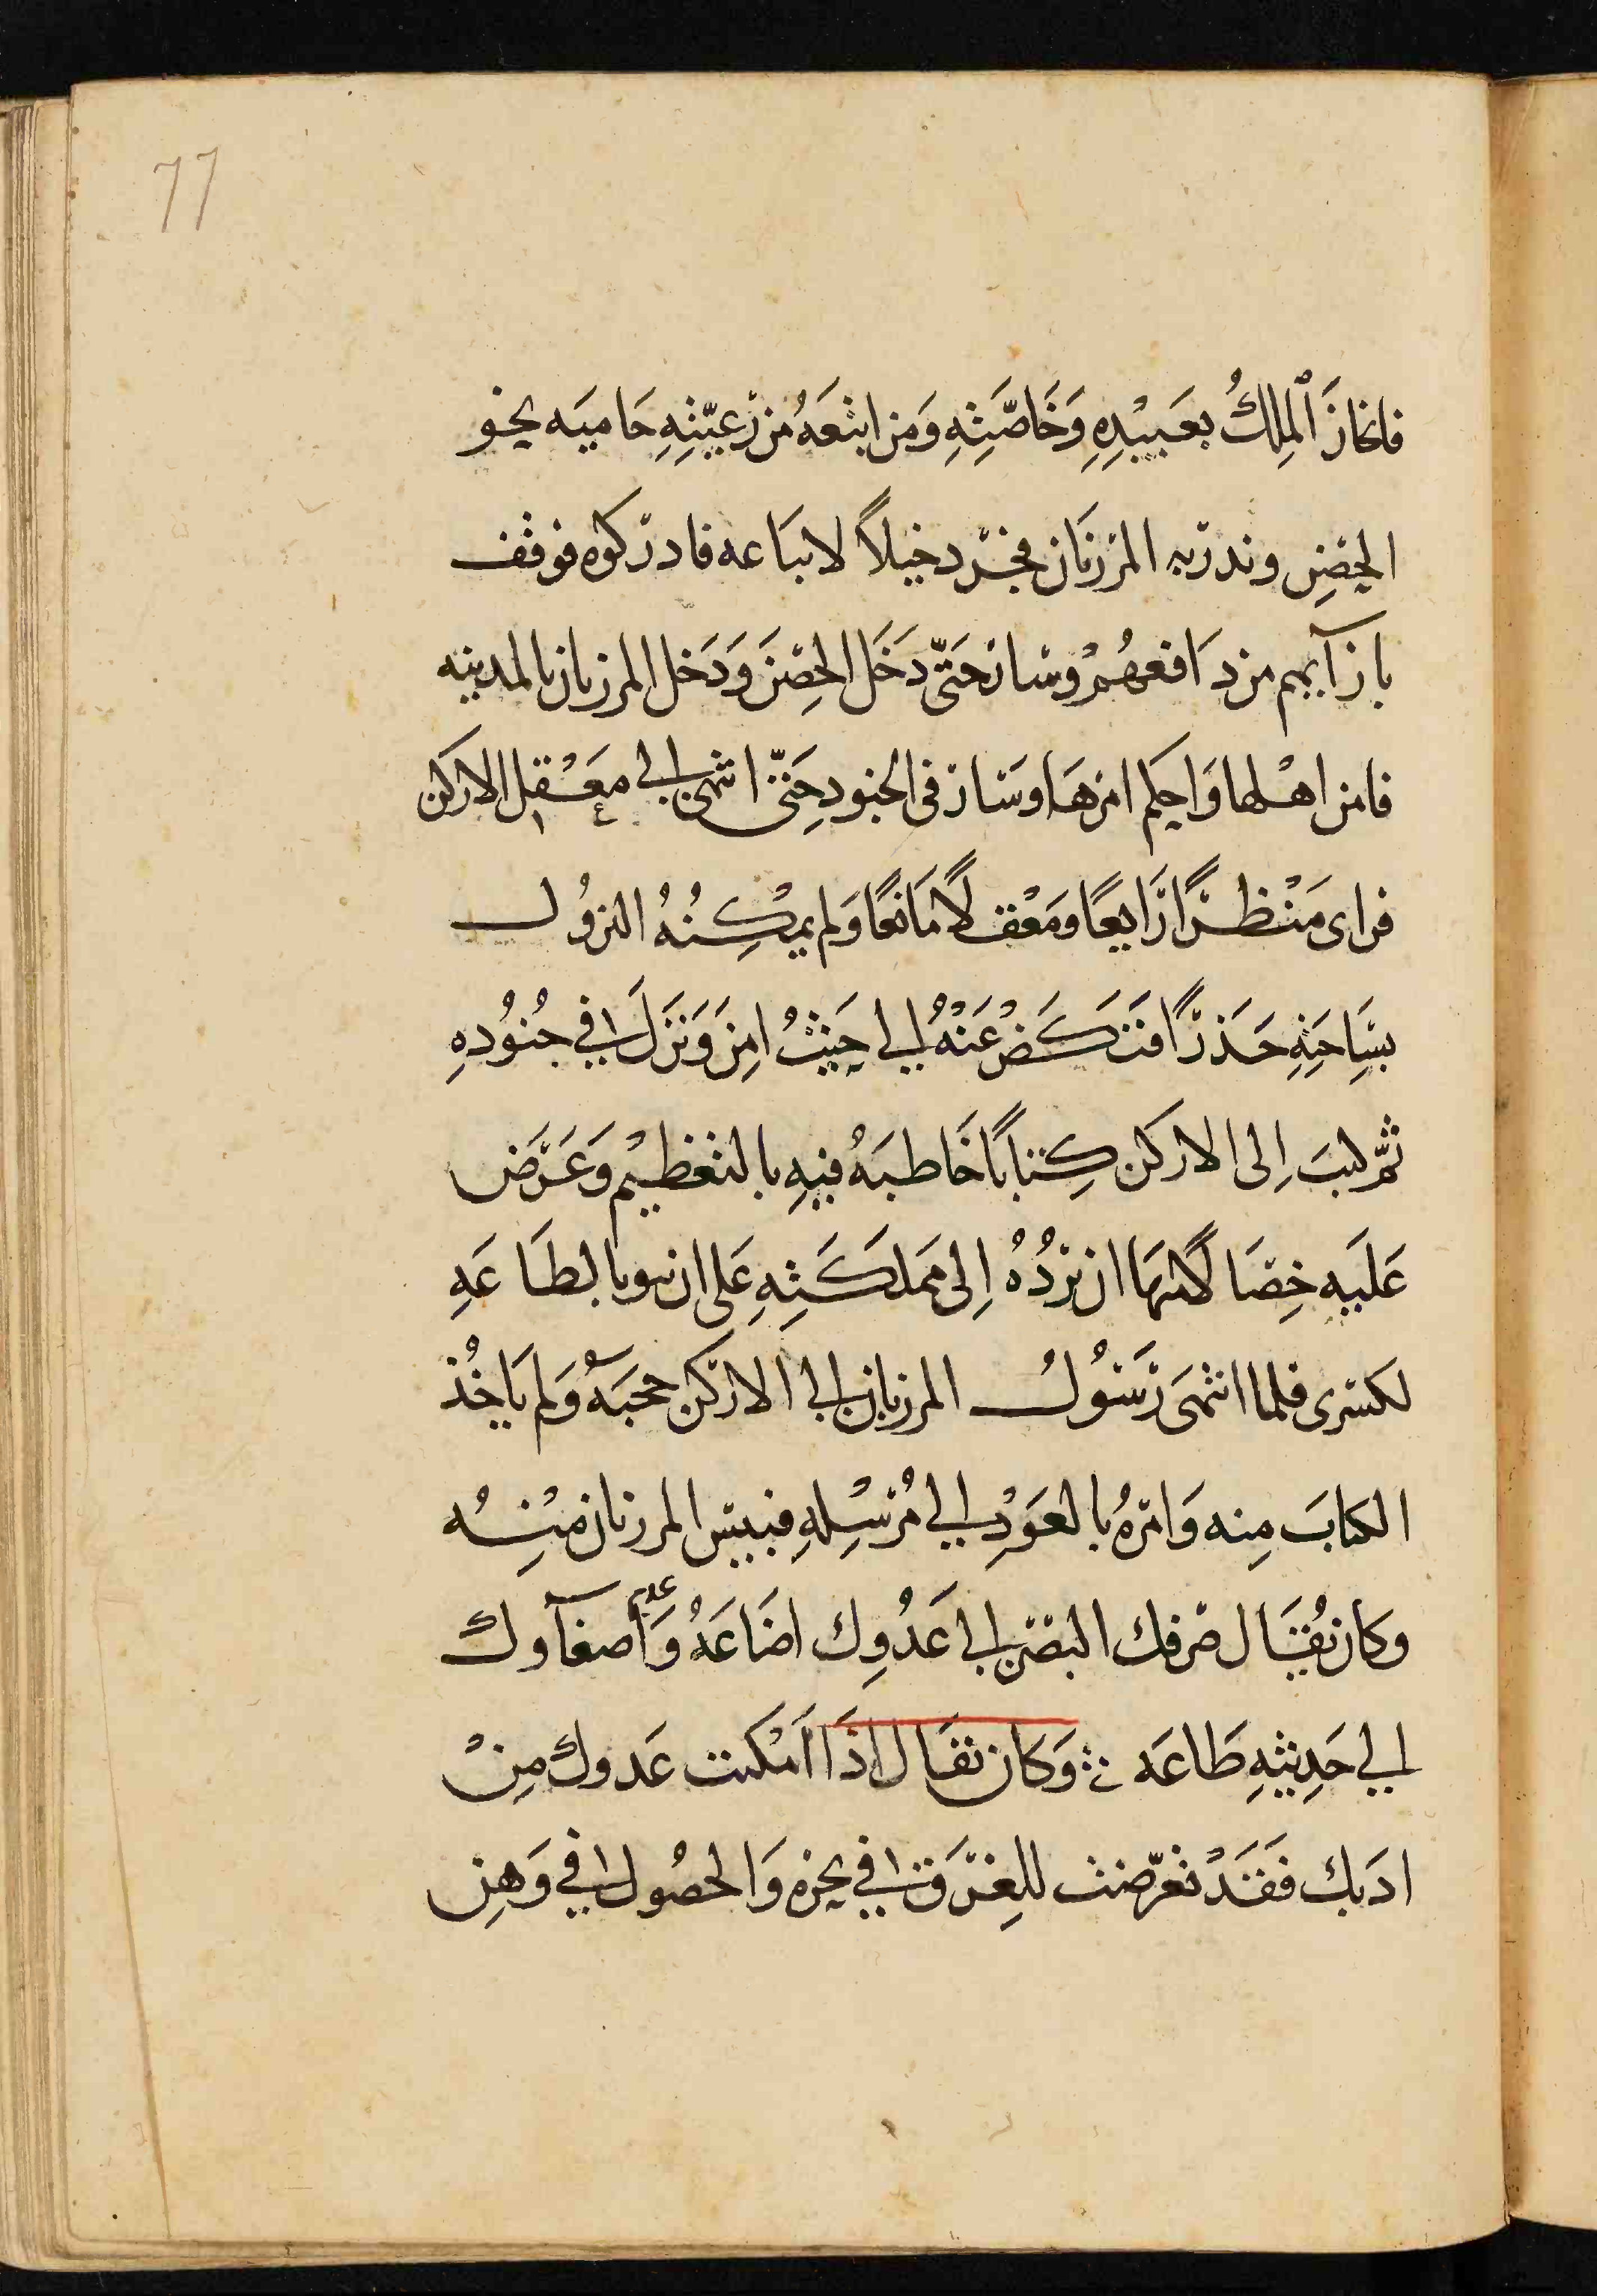 77
فانحازَ ٱلمِلِكُ بعَبيْدِهِ وَخَاصَّتِهِ وَمَن اتبَعَهُ من رَعيّتِهِ حَاميَه نحو
الحِصْنِ ونذر به المرزبَان فجرّد خيلاً لاتباعه فادركوه فوقف
بازآيهم من دَافعهُمْ وسَارَ حَتّى دَخَل الحِصْنَ وَدَخل المرزبان المدينه
فامن اهْلها وَاحكم امرهَا وسَار فى الجنود حَتّى انتهى الى معْقل الاركن
فراى مَنْظرًا رَايعًا ومَعْقلًا مَانعًا وَلم يمْكِنُهُ النزُول
بسَاحَتِهِ حَذرًا فتركَضْ عَنْهُ الى حَيْثُ امِنَ وَنزَلَ في جُنُودِهِ
ثمّ كتبَ اِلى الاركن كِتابًا خَاطبَهُ فيهِ بالتعْظيْم وَعَرَض
عَلَيه خِصَالًا منهَا ان يَرُدُّهُ اِلى مَملكَتِهِ عَلى ان يبو بالطَاعَهِ
لكسرى فلما انتهَى رَسُولُ المرزبان الى الاركن حجبَهُ وَلم يَاخُذ
الكتابَ مِنه وَامرهُ بالعَوْدِ الى مُرْسِلهِ فيئِس المرزبان مِنْه
وكان يُقَال صَرفك البصَر الى عَدُوِك اضَاعَهُ وَاصغآوك
الي حَدِيثِهِ طَاعَه وَكان يقَال اذَا اَمْكنت عَدوكَ مِنْ
ادَبك فقَدْ تعرّضت للغِرَق في بحره وَالحصُول في وَهنِ